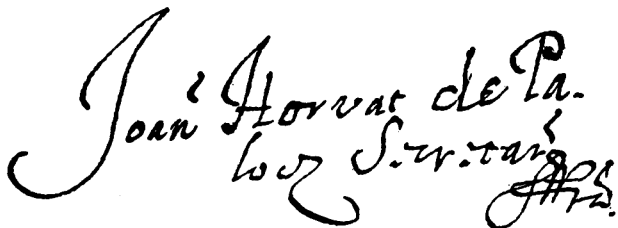 Joan' Horvat de Pa-
locz Secretar'